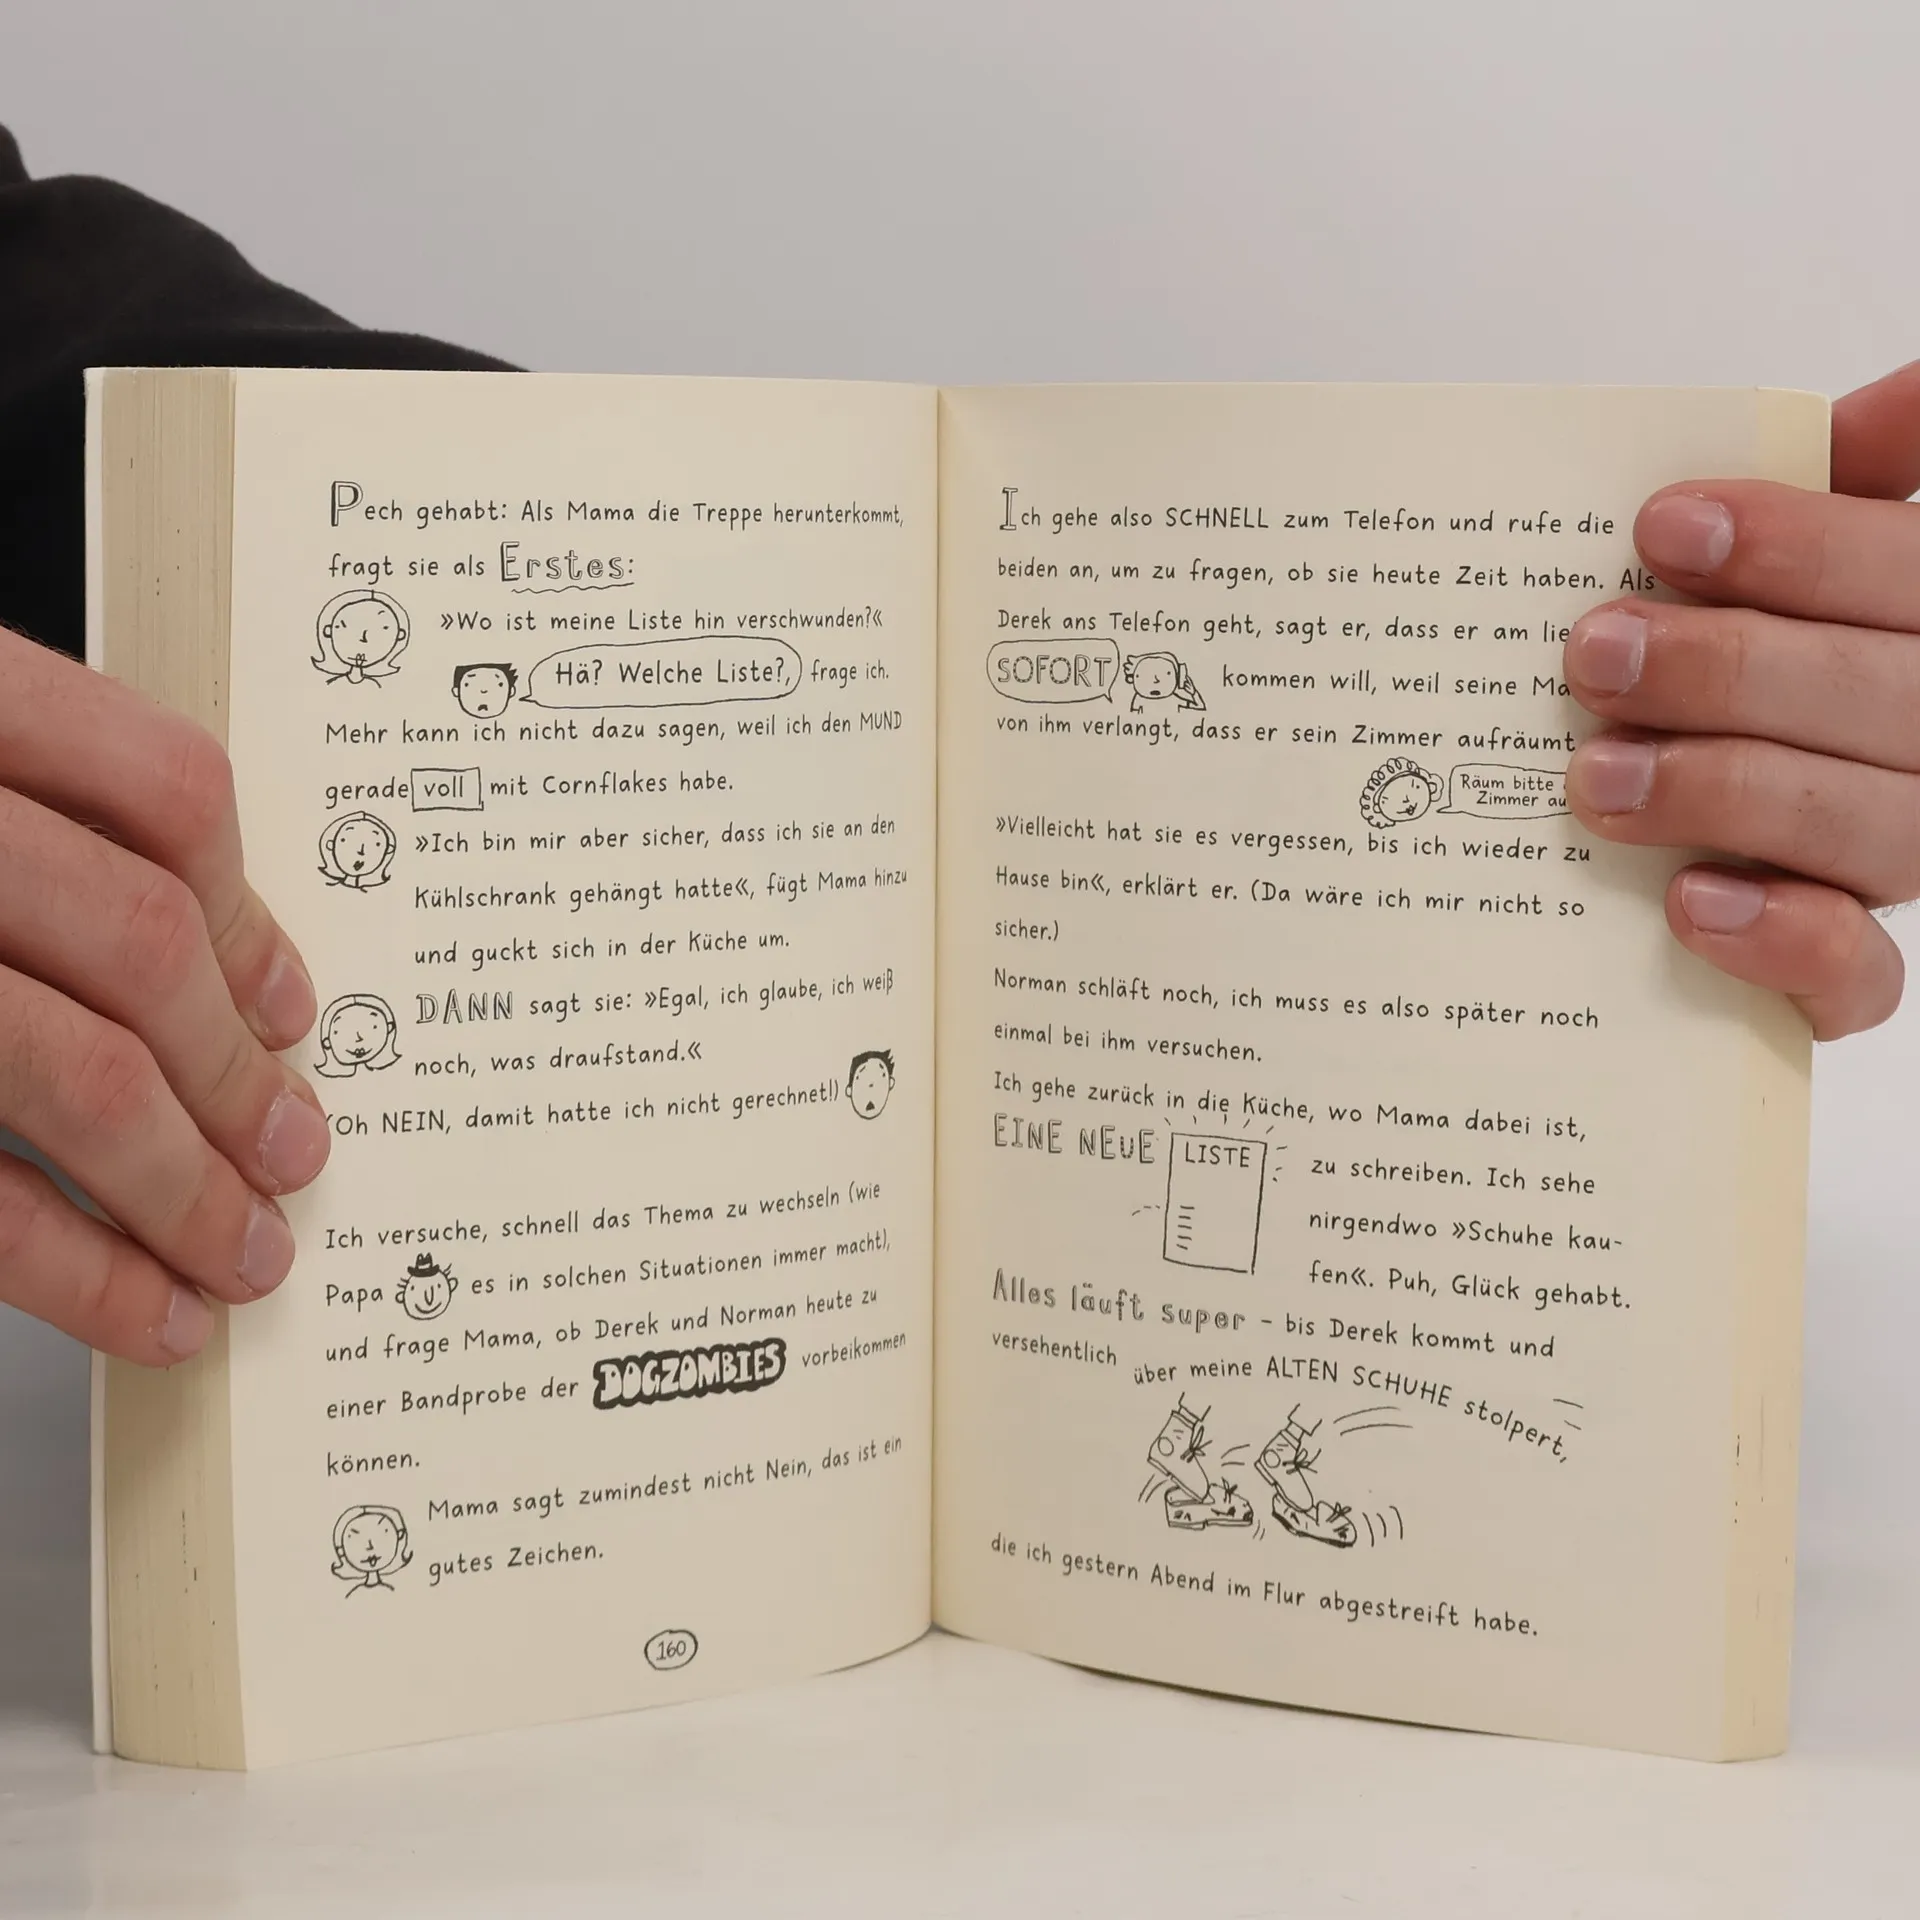 Pech gehabt: Als Mama die Treppe herunterkommt,
fragt sie als Erstes:
»Wo ist meine Liste hin verschwunden?«
Hä? Welche Liste?, frage ich.
Mehr kann ich nicht dazu sagen, weil ich den MUND
gerade voll mit Cornflakes habe.
»Ich bin mir aber sicher, dass ich sie an den
Kühlschrank gehängt hatte«, fügt Mama hinzu
und guckt sich in der Küche um.
DANN sagt sie: »Egal, ich glaube, ich weiß
noch, was draufstand.«
(Oh NEIN, damit hatte ich nicht gerechnet!)
Ich versuche, schnell das Thema zu wechseln (wie
Papa es in solchen Situationen immer macht),
und frage Mama, ob Derek und Norman heute zu
einer Bandprobe der DOGZOMBIES vorbeikommen
können.
Mama sagt zumindest nicht Nein, das ist ein
gutes Zeichen.
160
Ich gehe also SCHNELL zum Telefon und rufe die
beiden an, um zu fragen, ob sie heute Zeit haben. Als
Derek ans Telefon geht, sagt er, dass er am
SOFORT kommen will, weil seine
von ihm verlangt, dass er sein Zimmer aufräumt
Räum bitte
Zimmer
»Vielleicht hat sie es vergessen, bis ich wieder zu
Hause bin«, erklärt er. (Da wäre ich mir nicht so
sicher.)
Norman schläft noch, ich muss es also später noch
einmal bei ihm versuchen.
Ich gehe zurück in die Küche, wo Mama dabei ist,
EINE NEUE LISTE zu schreiben. Ich sehe
nirgendwo »Schuhe kau-
fen«. Puh, Glück gehabt.
Alles läuft super – bis Derek kommt und
versehentlich über meine ALTEN SCHUHE stolpert,
die ich gestern Abend im Flur abgestreift habe.